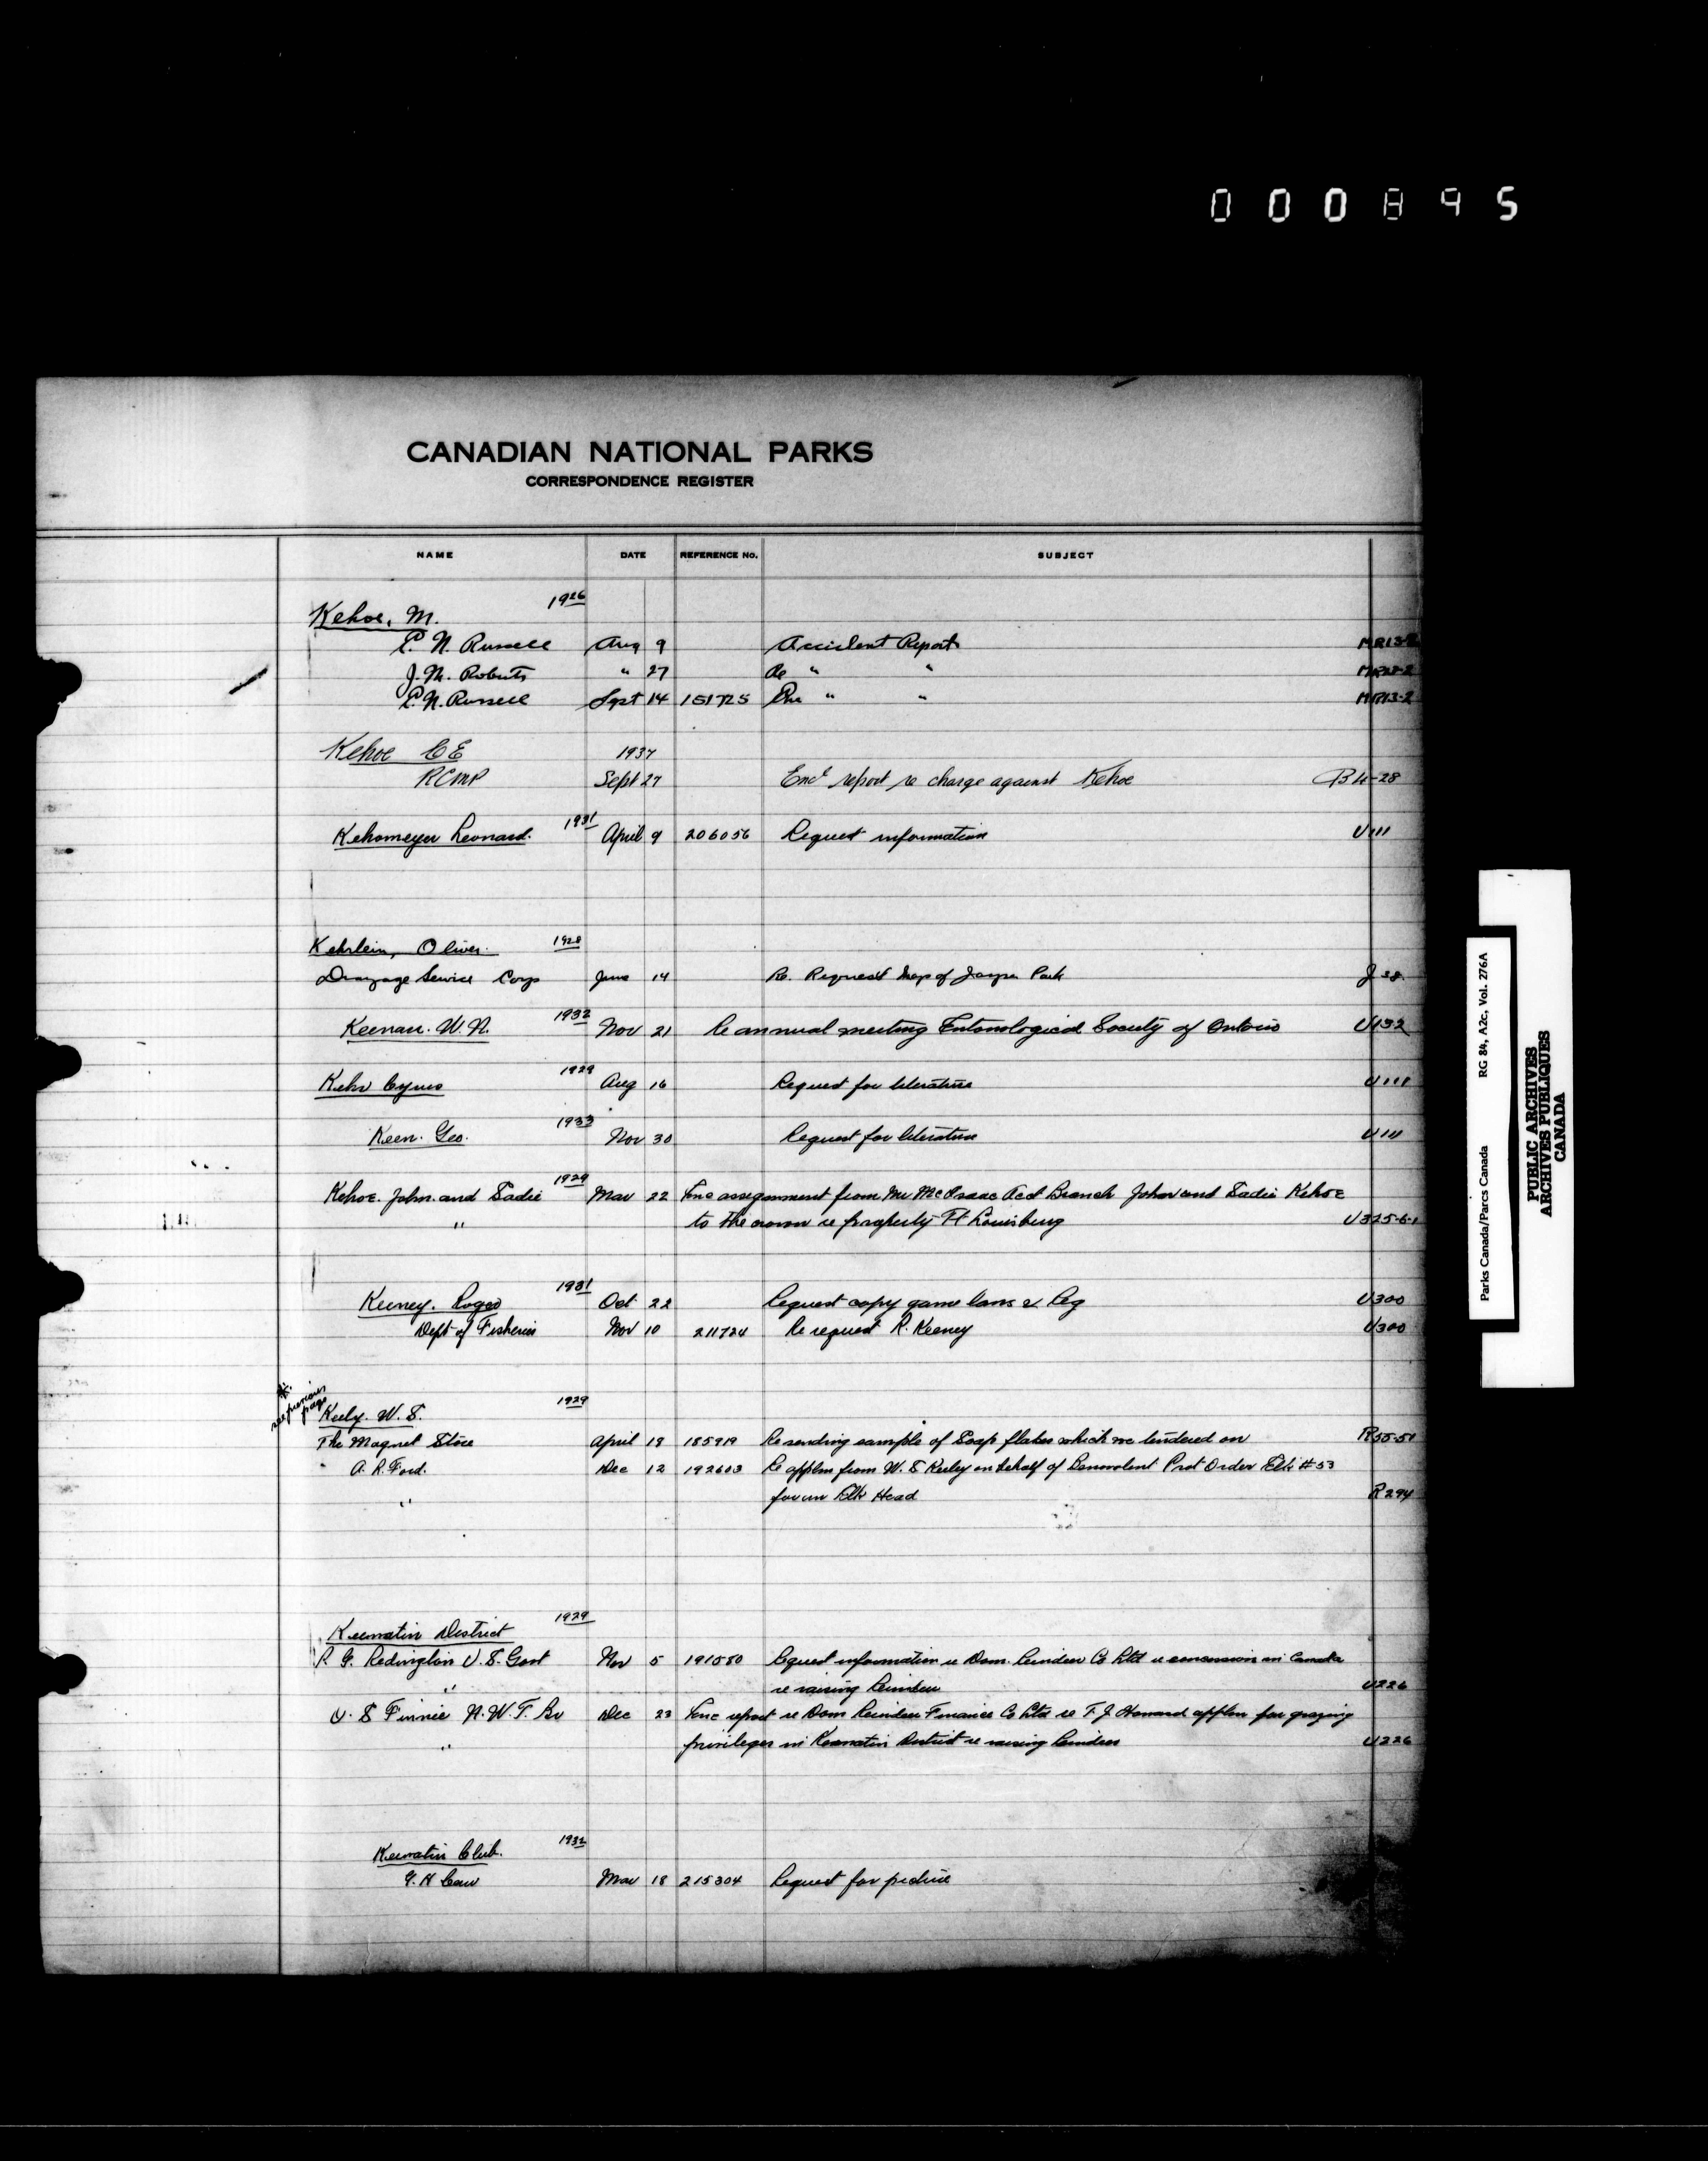 000895
CANADIAN NATIONAL PARKS
CORRESPONDENCE REGISTER
NAME DATE REFERENCE No. SUBJECT
Kehoe, M. 1926
P. N. Russell Aug 9 Accident Report MR13-2
J. M. Roberts " 27 Re " " MR13-2
P. N. Russell Sept 14 151725 " " MR13-2
Kehoe C E 1937
RCMP Sept 27 Encl report re charge against Kehoe B4-28
Kehomeyer Leonard. 1931 April 9 206056 Request information U111
Kehrlein, Oliver. 1928
Drayage Service Corp June 14 Re. Request Map of Jasper Park J 38.
Keenan. W. N. 1932 Nov 21 Re annual meeting Entomological Society of Ontario U132
Kehr Cyrus 1929 Aug 16 Request for literature U111
Keen. Geo. 1933 Nov 30 Request for literature U111
Kehoe. John. and Sadie 1929 Mar 22 Enc assignment from Mr McIsaac Act Branch John and Sadie Kehoe
" to the crown re property Ft Louisburg U325-6-1
Keeney. Roger 1931 Oct 22 Request copy game laws & Reg U300
Dept of Fisheries Nov 10 211724 Re request R. Keeney U300
* see previous page
Keely. W. S. 1929
The Magnet Store April 18 185919 Re sending sample of Soap flakes which we tendered on R55-51
" A. R. Ford. Dec 12 192603 Re applen from W. S Keeley on behalf of Benevolent Prot Order Elk #53
" for an Elk Head R294
Keewatin District 1929
P. G. Redington U. S. Govt Nov 5 191580 Request information re Dom. Reindeer Co Ltd re concession in Canada
" re raising Reindeer U226
O. S Finnie N. W. T. Br Dec 23 Enc report re Dom Reindeer Finance Co Ltd re T. J Howard applen for grazing
" privileges in Keewatin District re raising Reindeer U226
Keewatin Club. 1932
Mar 18 215304 Request for picture
Parks Canada/Parcs Canada RG 84, A2c, Vol. 276A
PUBLIC ARCHIVES
ARCHIVES PUBLIQUES
CANADA